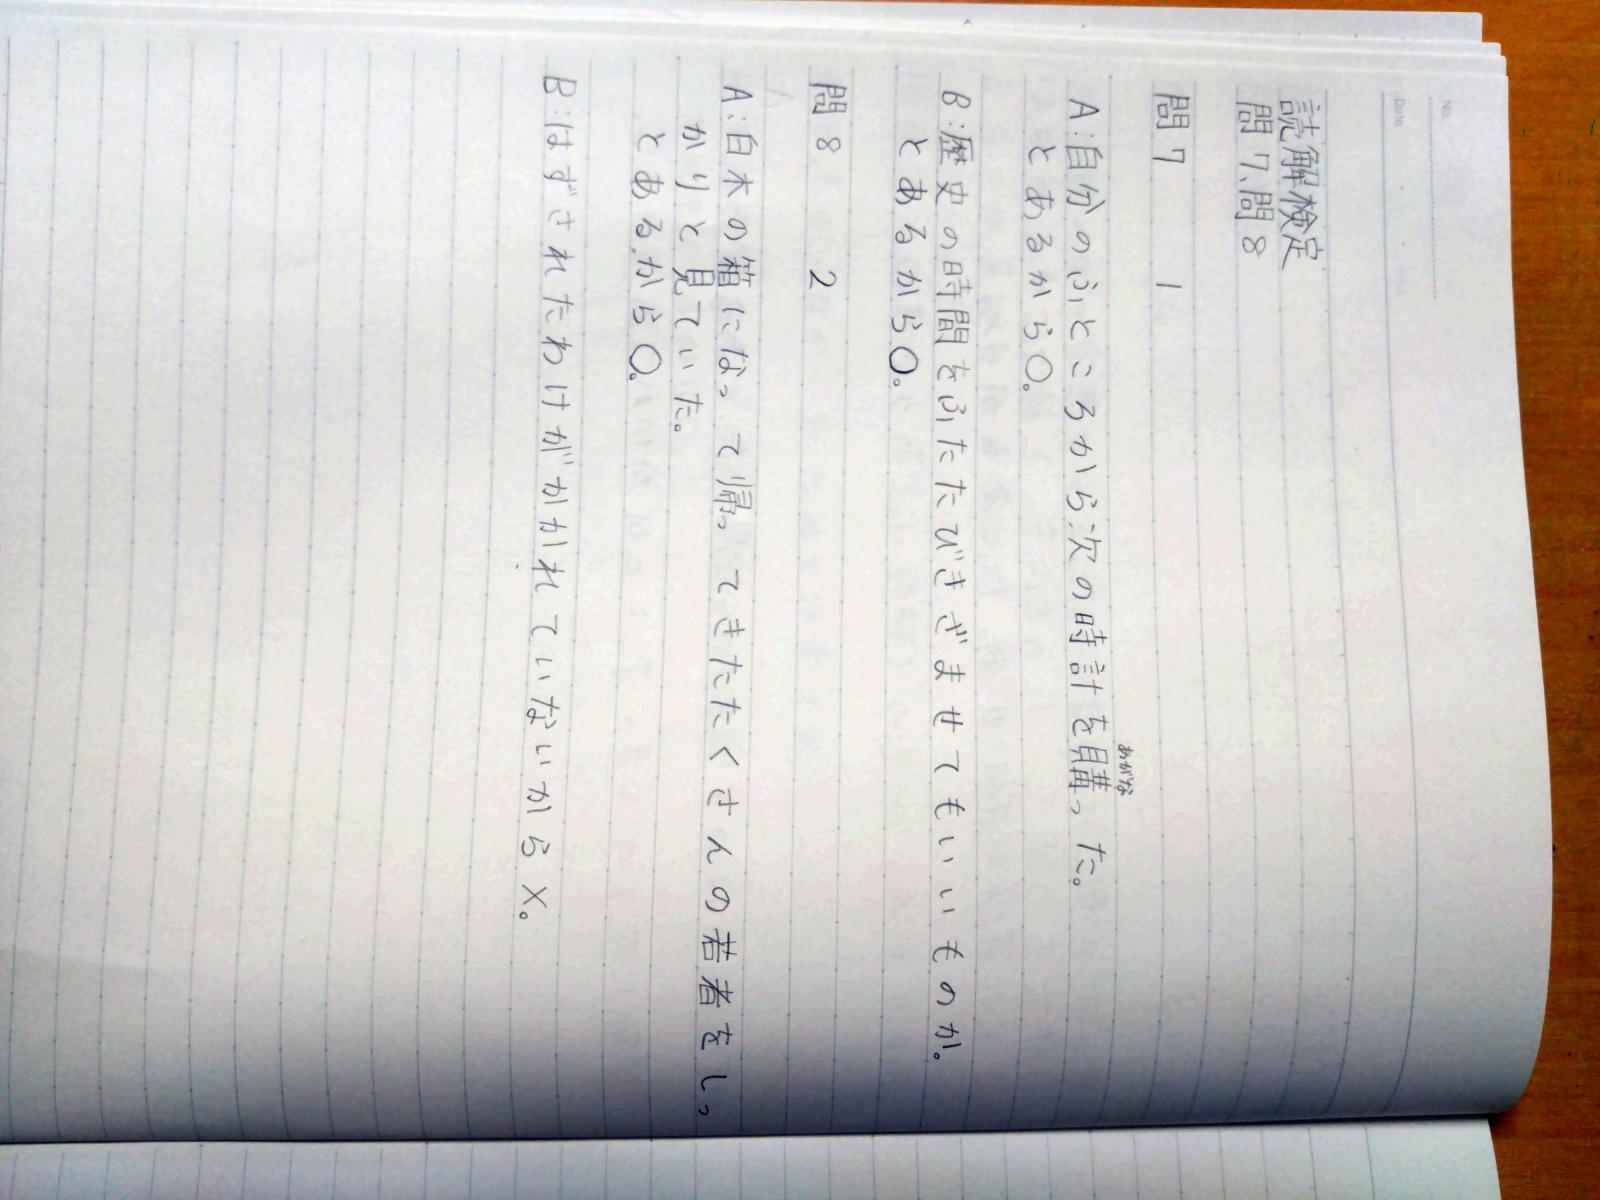 No.
Date
読解検定
問7、問8
問7 1
A:自分のふところから次の時計を購った。
あがな
とあるから○。
B:歴史の時間をふたたびきざませてもいいものか。
とあるから○。
問8 2
A:白木の箱になって帰ってきたたくさんの若者をしっ
かりと見ていた。
とあるから○。
B:はずされたわけがかかれていないから×。